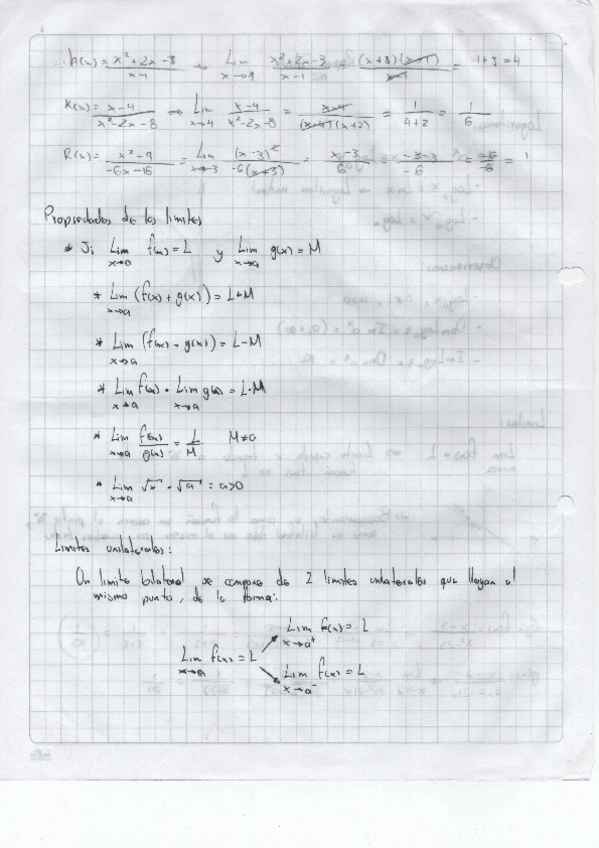 h(x) = x²+2x-3 / x-1 → Lim x→1 x²+2x-3 / x-1 (x+3)(x-1) / x-1 = 1+3 = 4
K(x) = x-4 / x²-2x-8 ⇒ Lim x→4 x-4 / x²-2x-8 = x-4 / (x-4)(x+2) = 1 / 4+2 = 1 / 6
R(x) = x²-9 / -6x-18 = Lim x→-3 (x-3) / -6(x+3) = x-3 / 6 = -3-3 / -6 = -6 / -6 = 1
Propiedades de los limites
* Si Lim x→a f(x) = L y Lim x→a g(x) = M
* Lim x→a (f(x) + g(x)) = L+M
* Lim x→a (f(x) - g(x)) = L-M
* Lim x→a f(x) · Lim x→a g(x) = L·M
* Lim x→a f(x) / g(x) = L / M M≠0
* Lim x→a √x = √a : a>0
Limites unilaterales:
Un limite bilateral se compone de 2 limites unilaterales que llegan al
mismo punto, de la forma:
Lim x→a⁺ f(x) = L
Lim x→a f(x) = L
Lim x→a⁻ f(x) = L